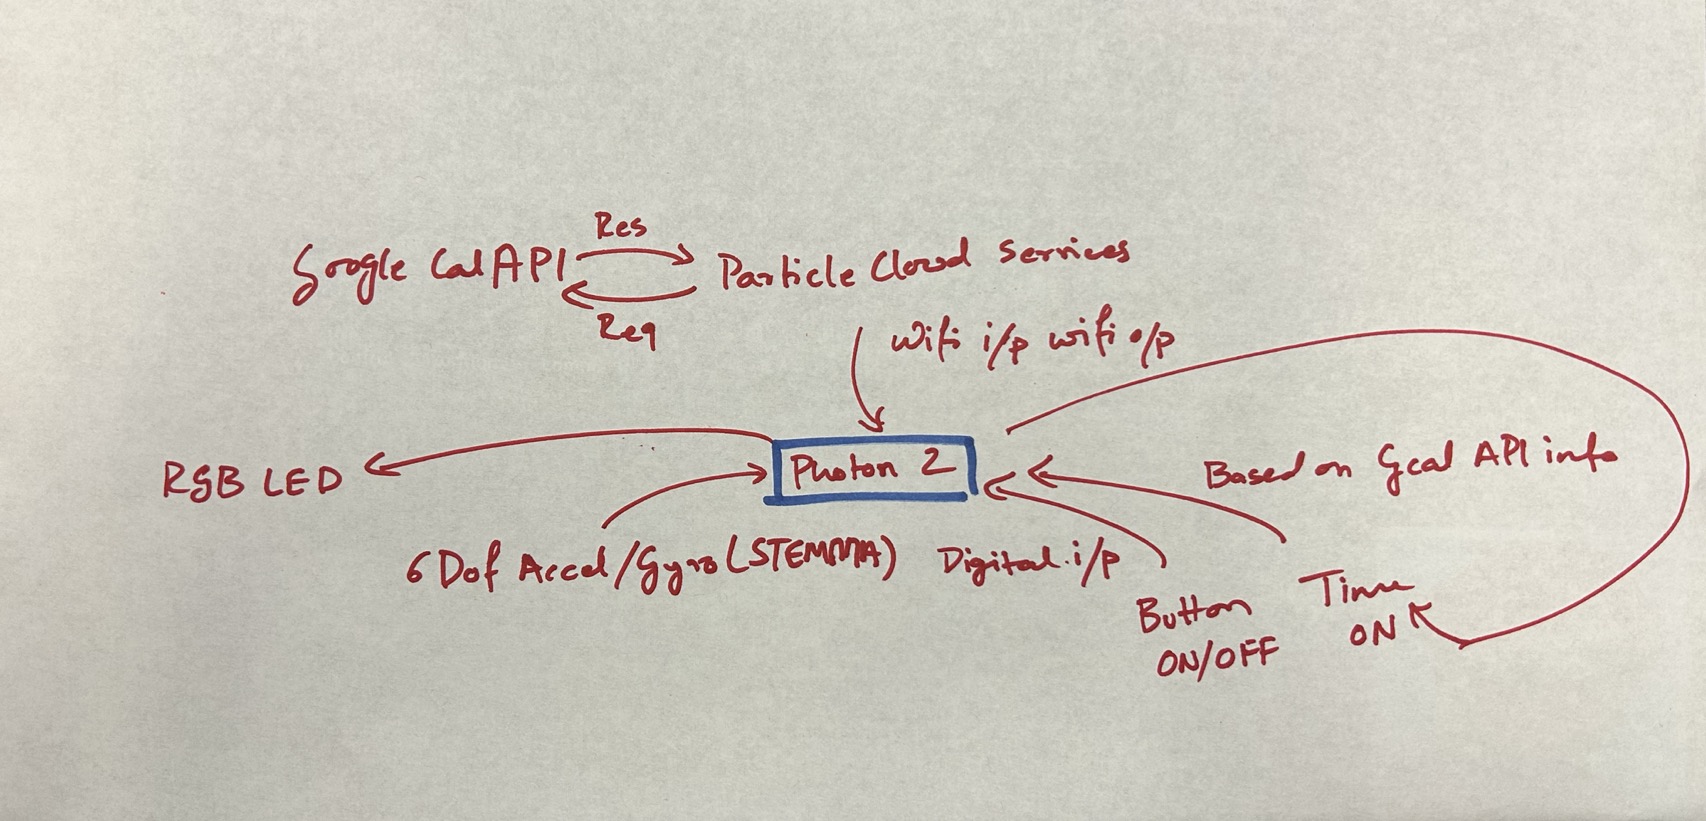 Res
Google Cal API
Particle Cloud Services
Req
Wifi i/p wifi o/p
Photon 2
RGB LED
Based on Gcal API info
6 Dof Accel/Gyro (STEMMA)
Digital i/p
Button
ON/OFF
Time
ON